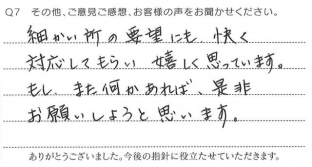 Q7 その他、ご意見ご感想、お客様の声をお聞かせください。
細かい所の要望にも、快く
対応してもらい 嬉しく思っています。
もし、また何かあれば、是非
お願いしようと思います。
ありがとうございました。今後の指針に役立たせていただきます。